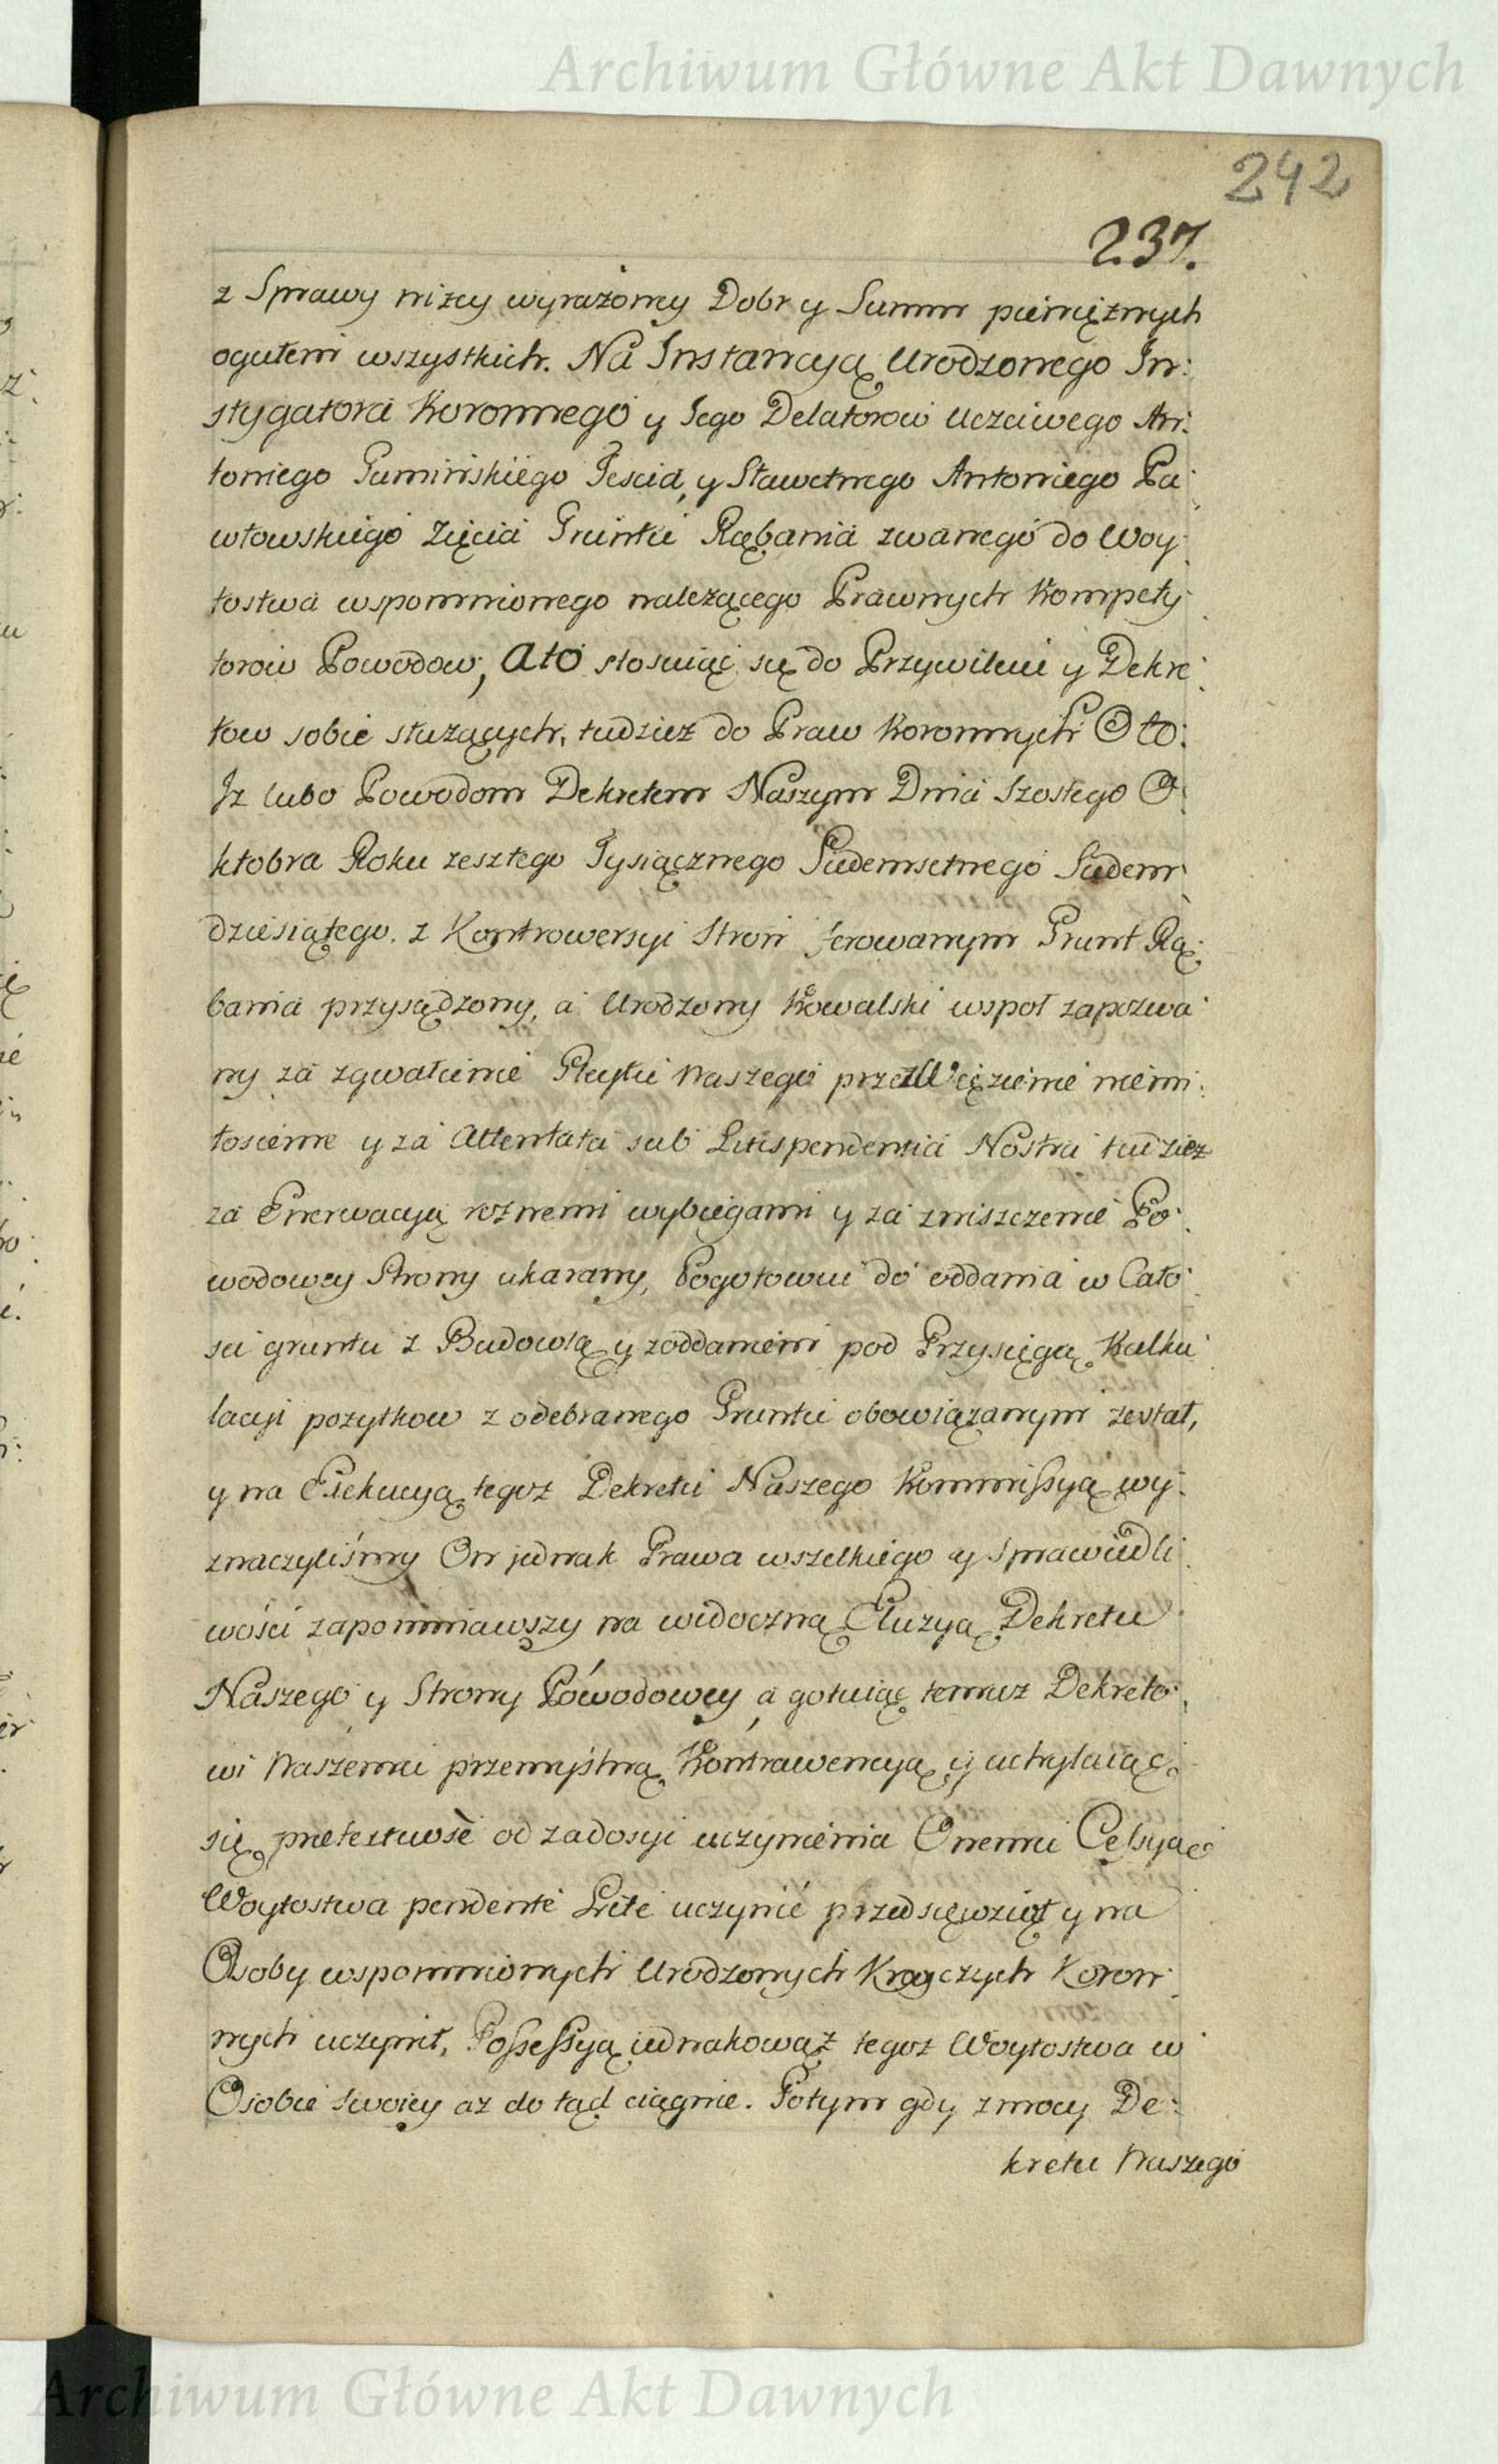 Archiwum Główne Akt Dawnych
242
237.
z Sprawy niżey wyrażoney Dobr y Summ pieniężnych
ogułem wszystkich. Na Instancyą Urodzonego In:
stygatora Koronnego y Jego Delatorow Uczciwego An:
toniego Gumińskiego Teścia, y Sławetnego Antoniego Pa:
włowskiego Zięcia Gruntu Rąbania zwanego do Woy:
tostwa wspomnionego należącego Prawnych Kompety:
torow Powodow, Ato stosuiąc się do Przywileiu y Dekre:
tow sobie służących, tudzież do Praw Koronnych Oto:
Iż lubo Powodom Dekretem Naszym Dnia Szostego O:
ktobra Roku zeszłego Tysiącznego Siedemsetnego Siedem:
dziesiątego. z Kontrowersyi Stron ferowanym Grunt Rą:
bania przysądzony, a Urodzony Kowalski wspoł zapozwa:
ny za zgwałcenie Gleytu Naszego przez Więzienie niemi:
łosierne y za Attentata sub Litispendentia Nostra tudzież
za Enerwacyą rożnemi wybiegami y za zniszczenie Po:
wodowey Strony ukarany, Pogotowiu do oddania w Cało:
ści gruntu z Budowlą y z oddaniem pod Przysięgą Kalku:
lacyi pożytkow z odebranego Gruntu obowiązanym został,
y na Exekucyą tegoż Dekretu Naszego Kommissyą wy:
znaczyliśmy On jednak Prawa wszelkiego y sprawiedli:
wości zapomniawszy na widoczną Eluzyą Dekretu
Naszego y Strony Powodowey a gotuiąc temuż Dekreto:
wi Naszemu przemyślną Kontrawencyą y uchylaiąc
się pretextuose od zadosyć uczynienia Onemu Cessyą
Woytostwa pendente Lite uczynić przedsięwziął y na
Osoby wspomnionych Urodzonych Krayczych Koron:
nych uczynił, Possessyą iednakowąż tegoż Woytostwa w
Osobie swoiey aż do tąd ciągnie. Potym gdy z mocy De:
kretu Naszego
Archiwum Główne Akt Dawnych